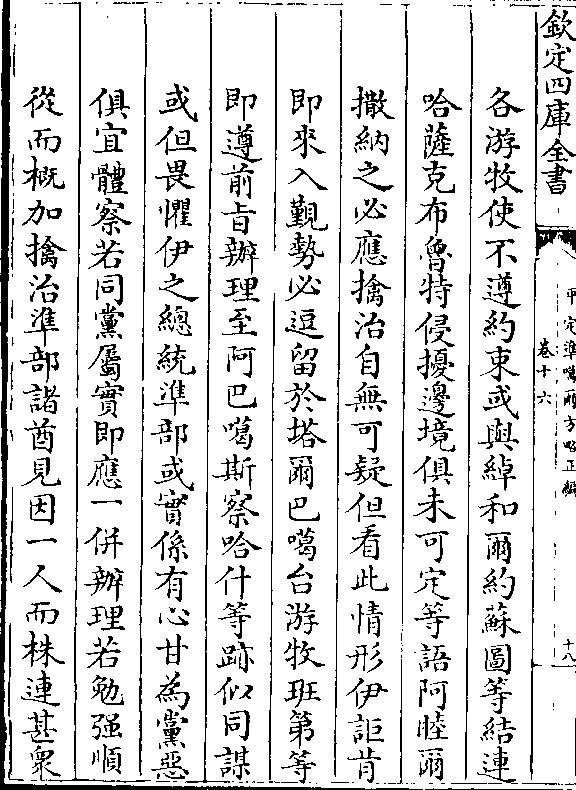 欽定四庫全書
平定準噶爾方略正編
卷十六
十八
各游牧使不遵約束或與綽和爾約蘇圖等結連
哈薩克布魯特侵擾邊境俱未可定等語阿睦爾
撒納之必應擒治自無可疑但看此情形伊詎肯
即來入覲勢必逗留於塔爾巴噶台游牧班第等
即遵前旨辦理至阿巴噶斯察哈什等跡似同謀
或但畏懼伊之總統準部或實係有心甘為黨惡
俱宜體察若同黨屬實即應一併辦理若勉强順
從而概加擒治準部諸酋見因一人而株連甚衆